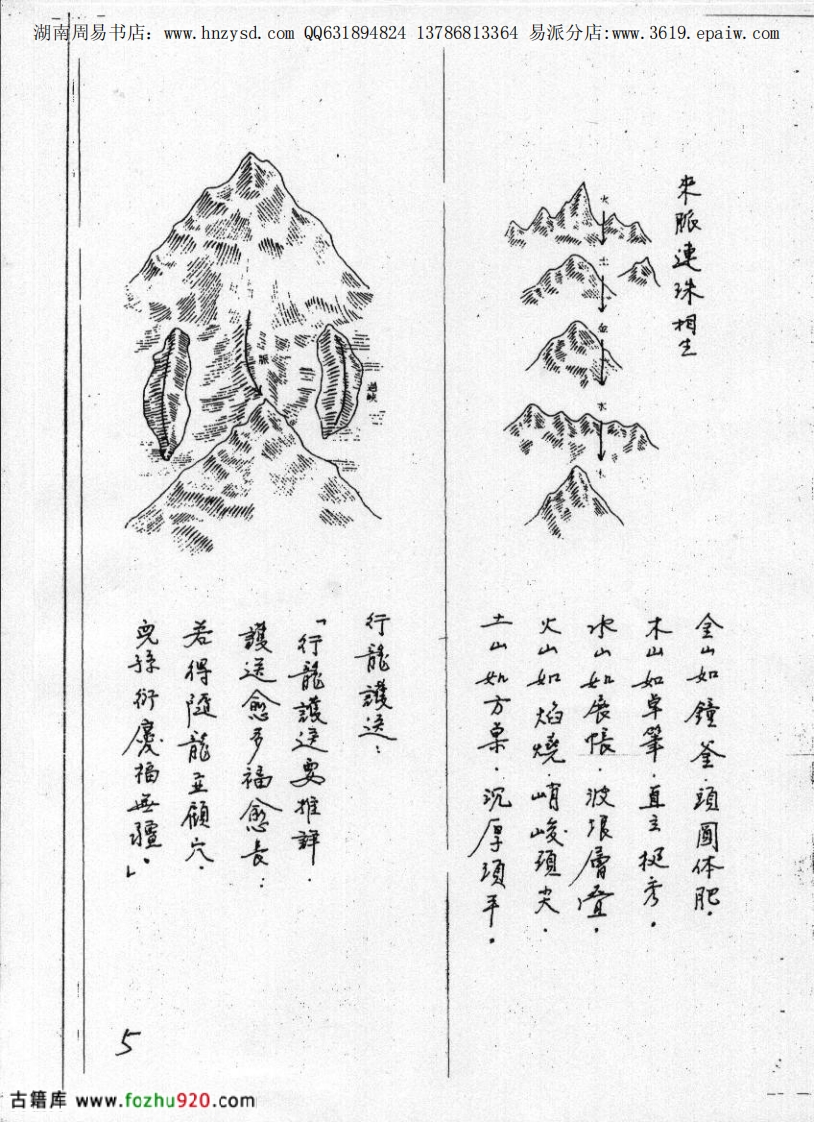 湖南周易书店：www.hnzysd.com QQ631894824 13786813364 易派分店:www.3619.epaiw.com
來脈連珠相生
火
土
金
水
木
金山如鐘釜．頭圓体肥．
木山如卓筆．直立挺秀．
水山如展帳．波浪層疊．
火山如焰燒．峭峻頭尖．
土山如方桌．沉厚頂平．
脈
過峽
行龍護送：
「行龍護送要推詳．
護送愈多福愈長：
若得隨龍並顧穴．
兒孫衍慶福無疆。」
5
古籍库 www.fozhu920.com